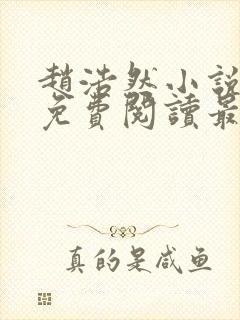 趙浩然小說
免費閱讀最
真的是咸鱼